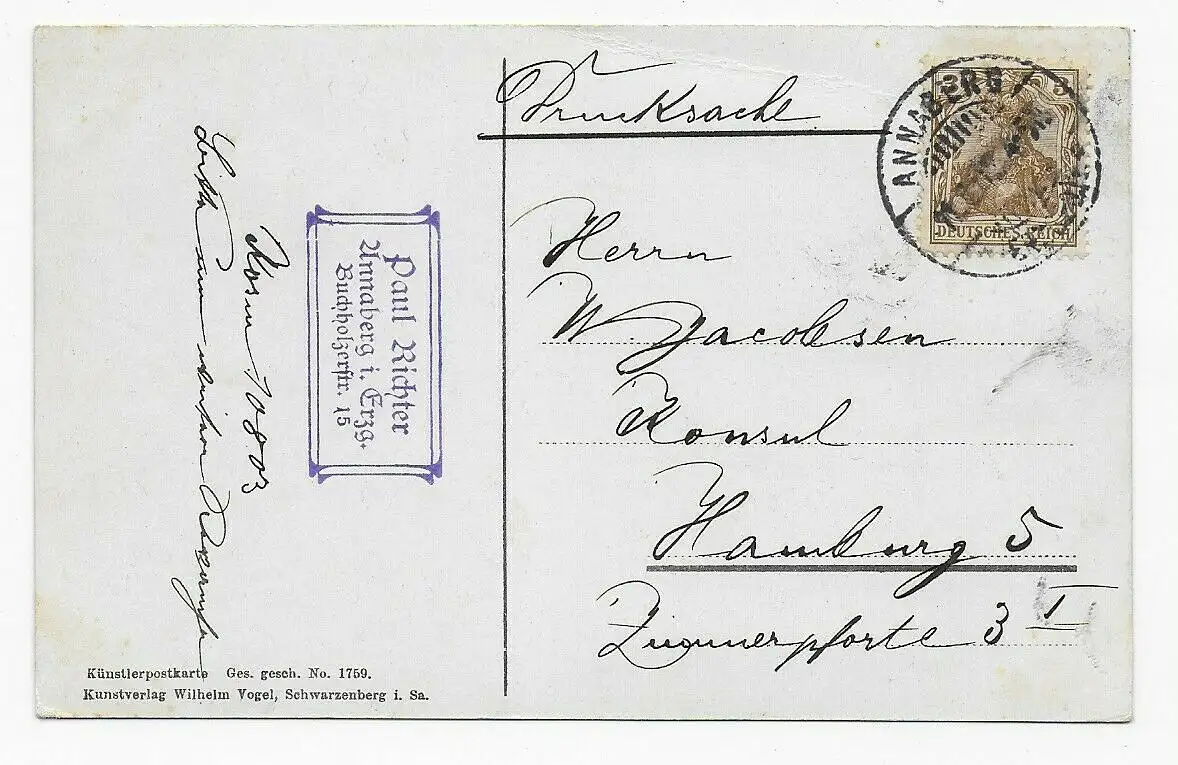 Drucksache
3 3
ANNABERG
DEUTSCHES REICH
Herrn
W Jacobsen
Konsul
Hamburg 5
Zimmerpforte 3 I
Paul Richter
Annaberg i. Erzg.
Buchholzerstr. 15
10803
Künstlerpostkarte Ges. gesch. No. 1759.
Kunstverlag Wilhelm Vogel, Schwarzenberg i. Sa.